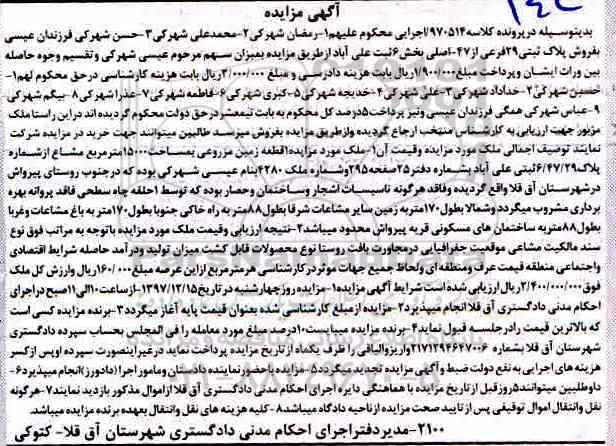 آگهی مزایده
بدینوسیله در پرونده کلاسه ۹۷۰۵۱۴/اجرایی محکوم علیهم ۱-رمضان شهرکی ۲-محمدعلی شهرکی ۳-حسن شهرکی فرزندان عیسی
بفروش پلاک ثبتی ۲۹فرعی از ۴۷-اصلی بخش ۶ثبت علی آباد از طریق مزایده بمیزان سهم مرحوم عیسی شهرکی و تقسیم وجوه حاصله
بین وراث ایشان و پرداخت مبلغ ۱/۹۰۰/۰۰۰ریال بابت هزینه دادرسی و مبلغ ۲/۰۰۰/۰۰۰ریال بابت هزینه کارشناسی در حق محکوم لهم ۱-
حسین شهرکی ۲-خداداد شهرکی ۳-علی شهرکی ۴-خدیجه شهرکی ۵-کبری شهرکی ۶-فاطمه شهرکی ۷-عذرا شهرکی ۸-بیگم شهرکی
۹-عباس شهرکی همگی فرزندان عیسی و نیز پرداخت ۵درصد کل محکوم به بابت نیمعشر در حق دولت محکوم گردیده اند در این راستا ملک
مزبور جهت ارزیابی به کارشناس منتخب ارجاع گردیده و از طریق مزایده بفروش میرسد طالبین میتوانند جهت خرید در مزایده شرکت
نمایند توصیف اجمالی ملک مورد مزایده و قیمت آن ۱-ملک مورد مزایده ۱قطعه زمین مزروعی بمساحت ۱۵۰۰۰مترمربع مشاع از شماره
پلاک ۶/۴۷/۲۹ثبتی علی آباد بشماره دفتر ۲۵صفحه ۲۹۵و شماره ملک ۴۲۸۰بنام عیسی شهرکی بوده که در جنوب روستای پیرواش
در شهرستان آق قلا واقع گردیده و فاقد هرگونه تاسیسات اشجار و ساختمان و حصار بوده که توسط ۱حلقه چاه سطحی فاقد پروانه بهره
برداری مشروب میگردد و شمالا بطول ۱۷۰متر به زمین سایر مشاعات شرقا بطول ۸۸متر به راه خاکی جنوبا بطول ۱۷۰متر به باغ مشاعات و غربا
بطول ۸۸متر به ساختمان های مسکونی قریه پیرواش محدود میباشد ۲-نتیجه ارزیابی و قیمت ملک مورد مزایده با توجه به مراتب فوق نوع
سند مالکیت مشاعی موقعیت جغرافیایی در مجاورت بافت روستا نوع محصولات قابل کشت میزان تولید و درآمد حاصله شرایط اقتصادی
و اجتماعی منطقه قیمت عرف و منطقه ای و لحاظ جمیع جهات موثر در کارشناسی هر مترمربع از این عرصه مبلغ ۱۶۰/۰۰۰ریال و ارزش کل ملک
فوق ۲/۴۰۰/۰۰۰/۰۰۰ریال ارزیابی شده است شرایط آگهی مزایده ۱-مزایده روز چهارشنبه در تاریخ ۱۳۹۷/۱۲/۱۵از ساعت ۱۰الی ۱۱صبح در اجرای
احکام مدنی دادگستری آق قلا انجام میپذیرد ۲-مزایده از مبلغ کارشناسی شده بعنوان قیمت پایه آغاز میگردد ۳-برنده مزایده کسی است
که بالاترین قیمت را در جلسه قبول نماید ۴-برنده مزایده میبایست ۱۰درصد مبلغ مورد معامله را فی المجلس بحساب سپرده دادگستری
شهرستان آق قلا بشماره ۲۱۷۱۲۹۴۶۴۷۰۰۶واریز و الباقی را ظرف یکماه از تاریخ مزایده پرداخت نماید در غیر اینصورت سپرده او پس از کسر
هزینه های اجرایی به نفع دولت ضبط و آگهی مزایده تجدید میگردد ۵-مزایده با حضور نماینده دادستان و مامور اجرا (دادورز) انجام میپذیرد ۶-
داوطلبین میتوانند ۵روز قبل از تاریخ مزایده با هماهنگی دایره اجرای احکام مدنی دادگستری آق قلا از اموال مذکور بازدید نمایند ۷-هرگونه
نقل و انتقال اموال توقیفی پس از تایید صحت مزایده از ناحیه دادگاه میباشد ۸-کلیه هزینه های نقل و انتقال بعهده برنده مزایده میباشد.
۲۱۰۰-مدیر دفتر اجرای احکام مدنی دادگستری شهرستان آق قلا- کتوکی